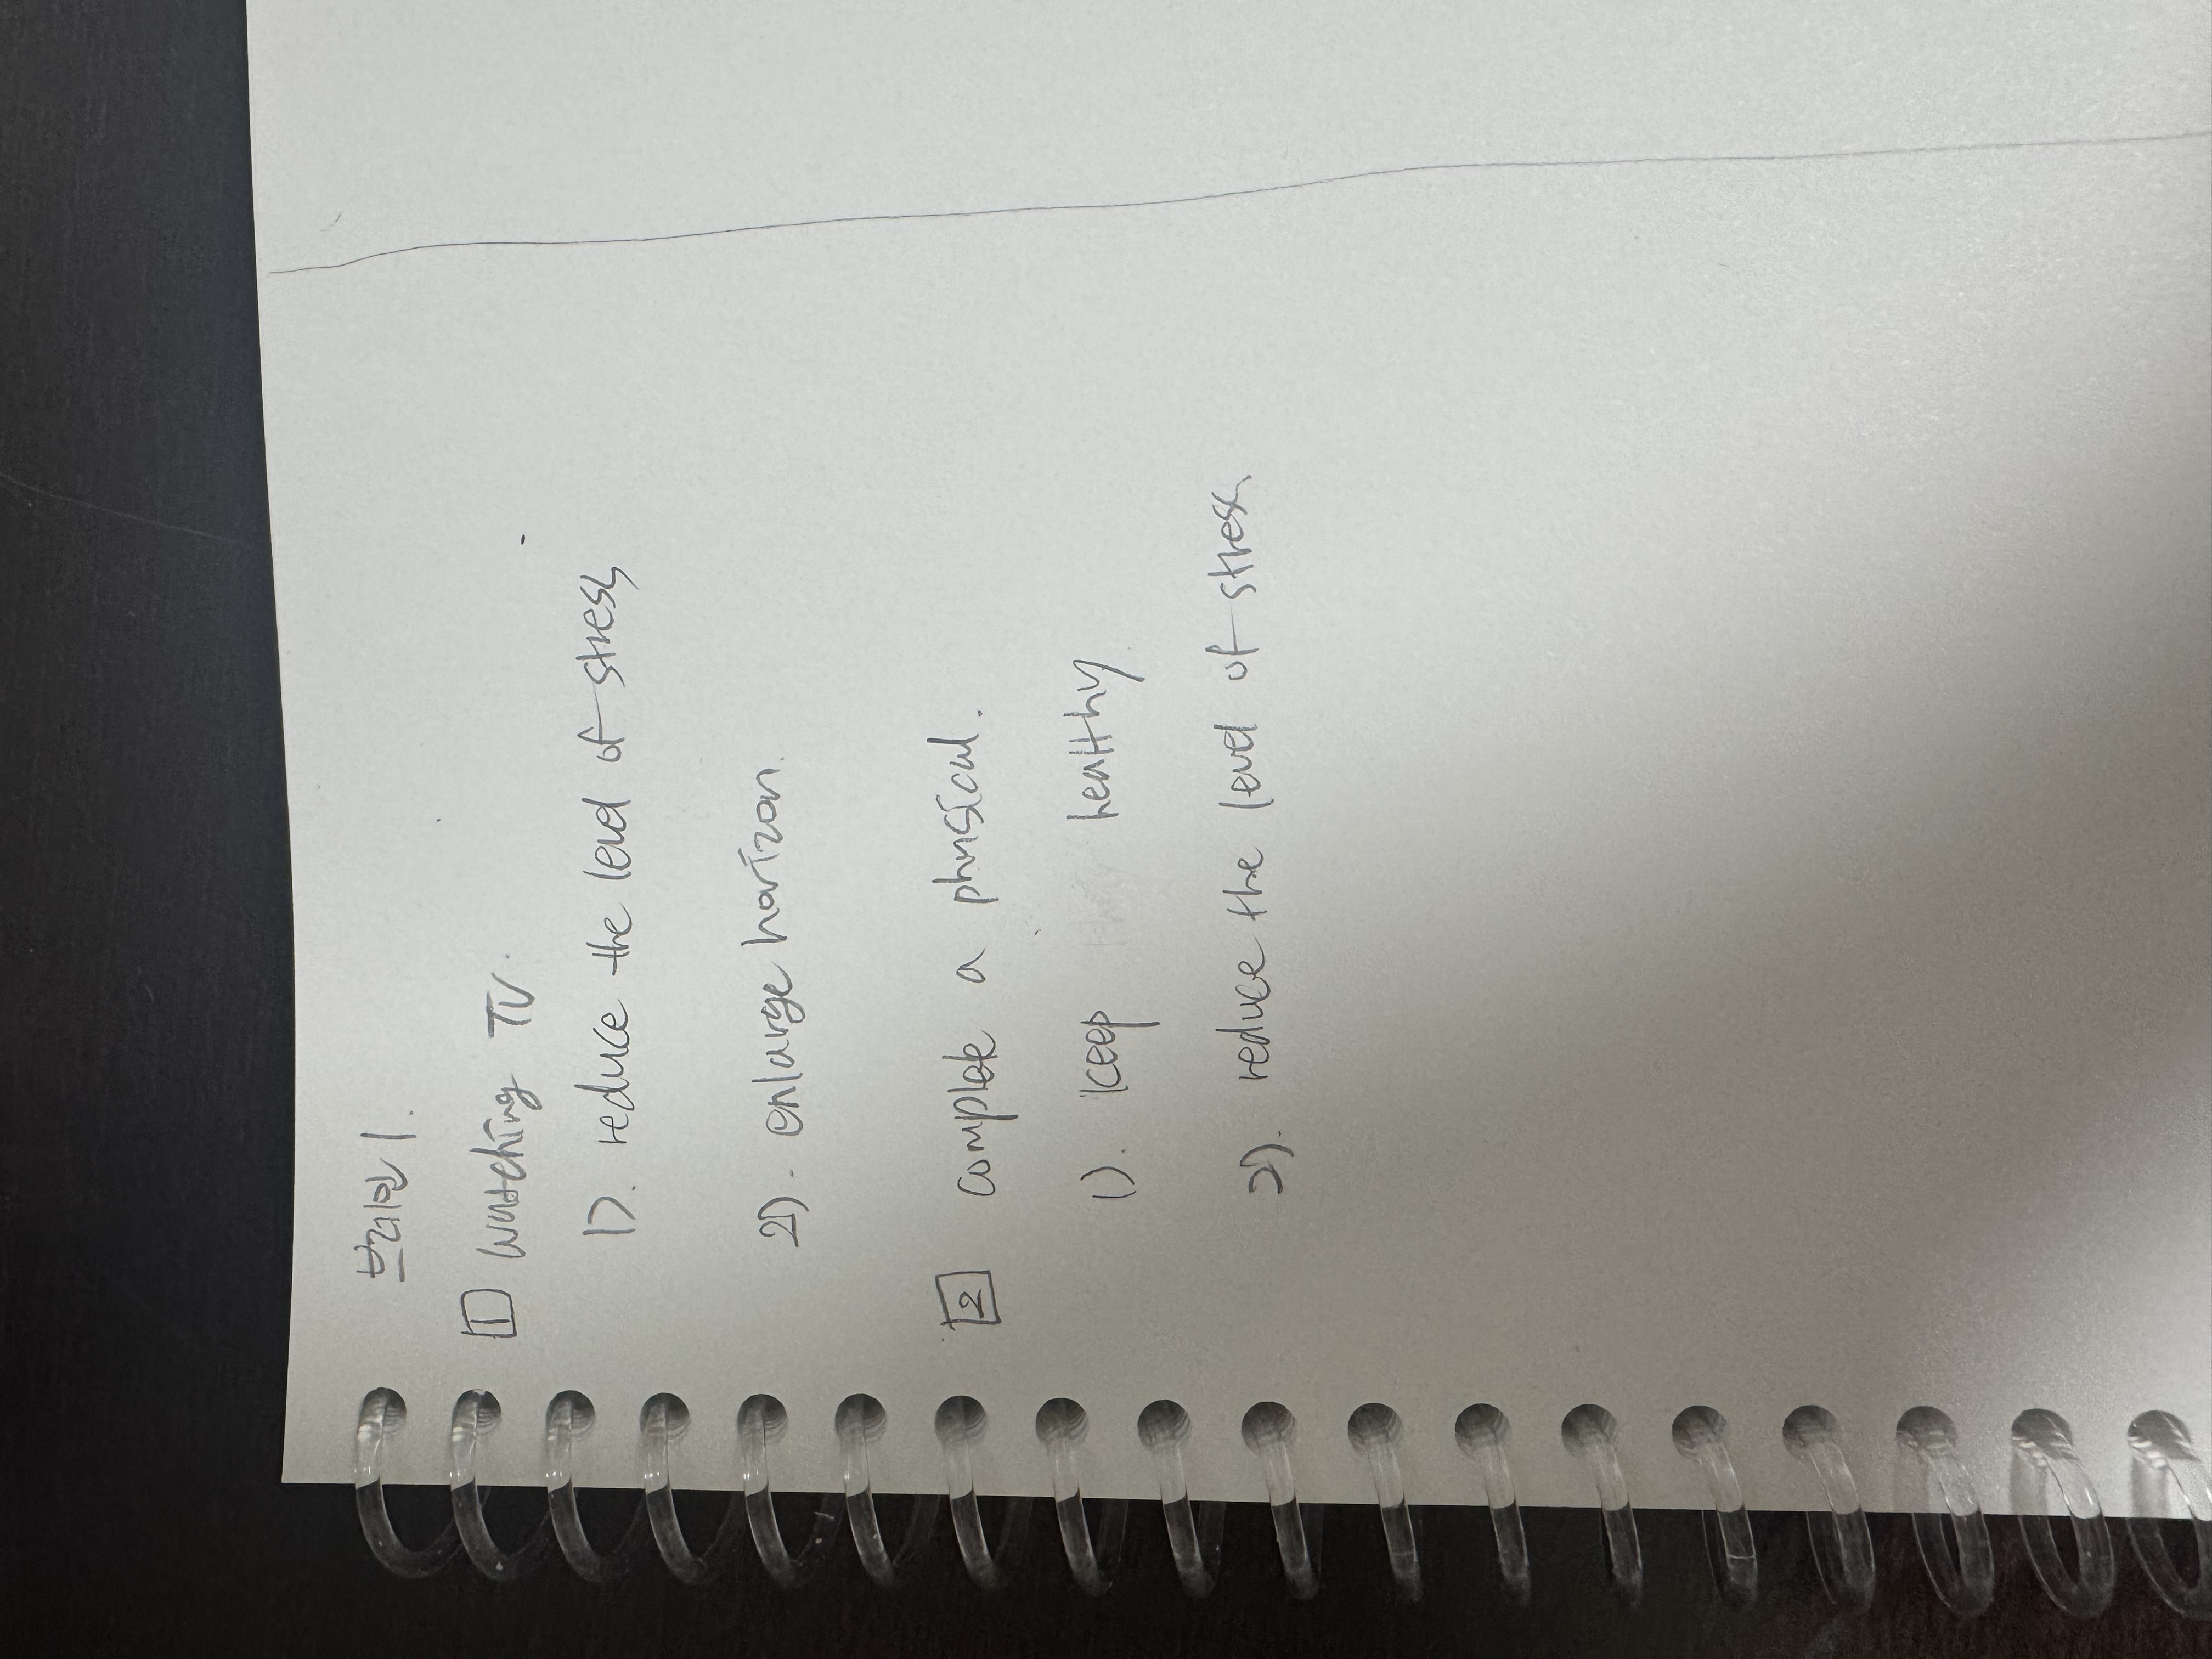 브레인 1.
1 Watching TV.
1). reduce the level of stress
2). enlarge horizon.
2 complete a phrsical.
1). keep healthy
2). reduce the level of stress